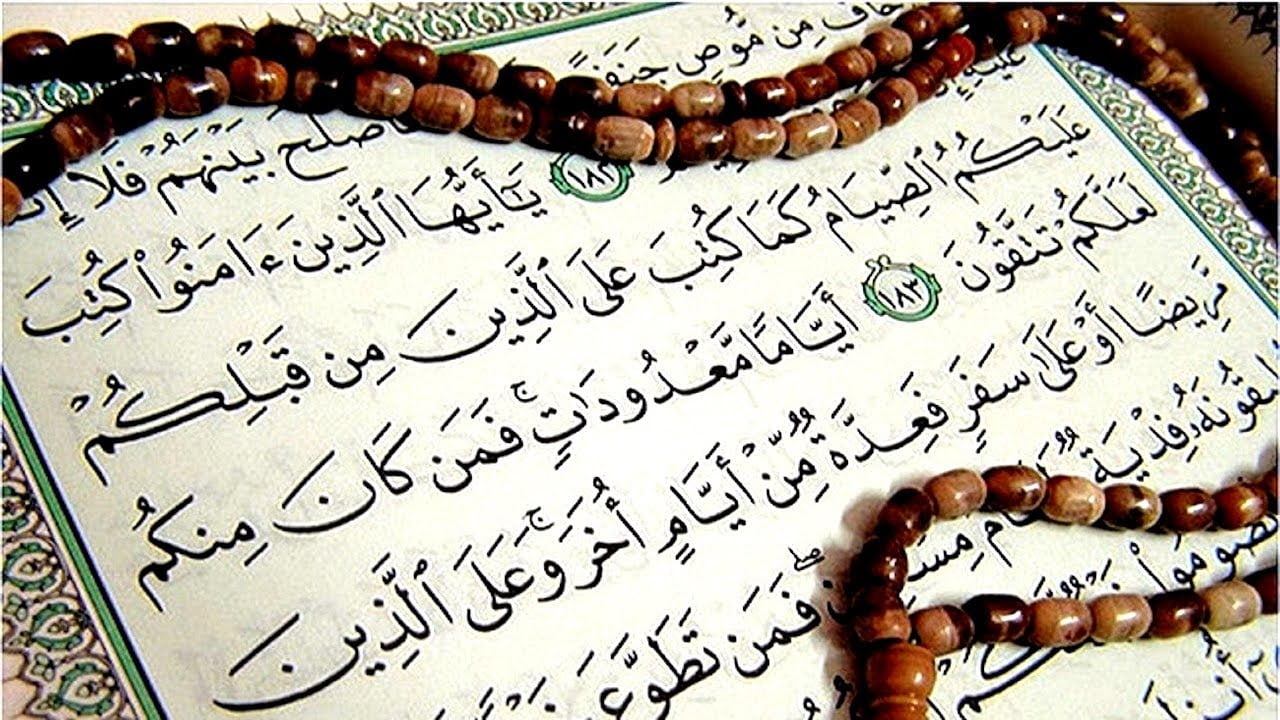 خَافَ مِن مُّوصٍ
بَيْنَهُمْ فَلَآ
عَلَيْهِ ١٨٢ يَٰٓأَيُّهَا ٱلَّذِينَ ءَامَنُوا۟ كُتِبَ
عَلَيْكُمُ ٱلصِّيَامُ كَمَا كُتِبَ عَلَى ٱلَّذِينَ مِن قَبْلِكُمْ
لَعَلَّكُمْ تَتَّقُونَ ١٨٣ أَيَّامًا مَّعْدُودَٰتٍ ۚ فَمَن كَانَ مِنكُم
مَّرِيضًا أَوْ عَلَىٰ سَفَرٍ فَعِدَّةٌ مِّنْ أَيَّامٍ أُخَرَ ۚ وَعَلَى ٱلَّذِينَ
فِدْيَةٌ فَمَن تَطَوَّعَ